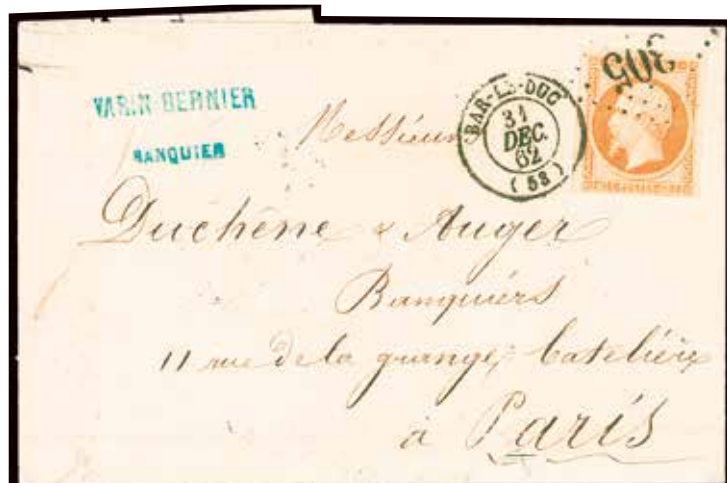 VARIN-BERNIER
BANQUIER
BAR-LE-DUC
31
DEC.
62
(53)
Messieurs
Duchêne & Auger
Banquiers
11 rue de la grange Batelière
à Paris